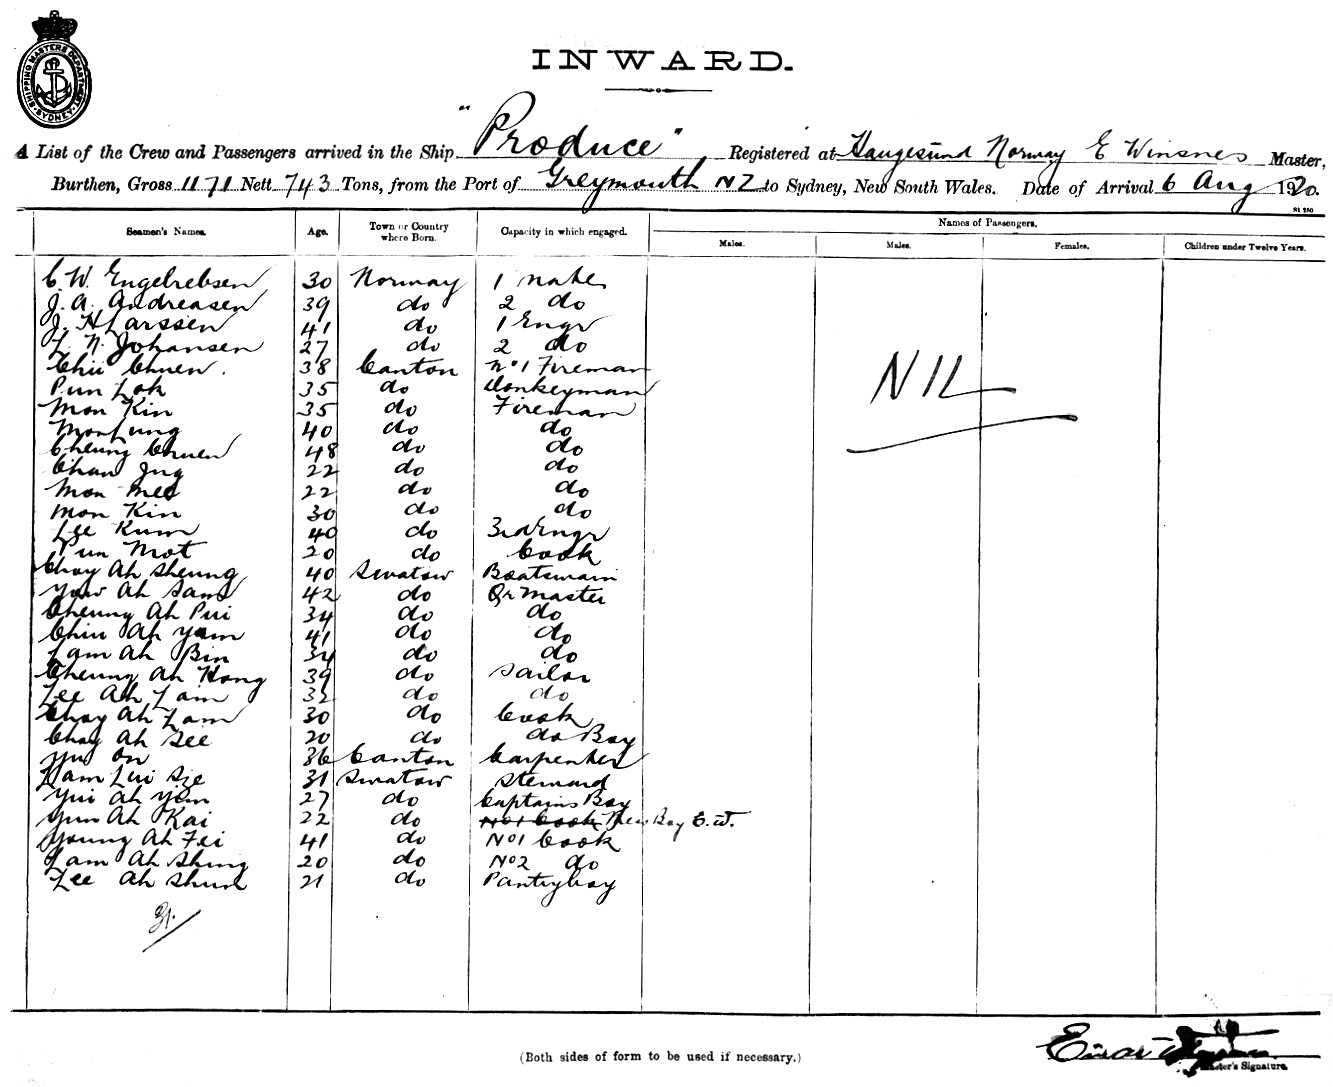 SHIPPING MASTERS DEPARTMENT
SYDNEY
INWARD.
A List of the Crew and Passengers arrived in the Ship "Produce" Registered at Haugesund Norway E Winsnes Master,
Burthen, Gross 1171 Nett 743 Tons, from the Port of Greymouth NZ to Sydney, New South Wales. Date of Arrival 6 Aug 1920.
Seamen's Names. Age. Town or Country where Born. Capacity in which engaged. Names of Passengers.
Males. Males. Females. Children under Twelve Years.
C W. Engelrebsen 30 Norway 1 mate
J. A. Andreasen 39 do 2 do
J. H Larssen 41 do 1 Engr
T. N. Johansen 27 do 2 do
Chii Chuen. 38 Canton No 1 Fireman
Pun Lok 35 do Donkeyman
Mon Kin 35 do Fireman
Mon Lung 40 do do
Cheung Chuen 48 do do
Chan Jng 22 do do
Mon Mee 22 do do
Mon Kin 30 do do
Lee Kum 40 do 3rd Engr
Pun Mot 20 do Cook
Choy Ah Sheung 40 Swatow Boatswain
Yow Ah Sam 42 do Qr Master
Cheung Ah Pui 34 do do
Chiu Ah Yam 41 do do
Lam Ah Bin 34 do do
Cheung Ah Hong 39 do Sailor
Lee Ah Lam 32 do do
Choy Ah Lam 30 do Cook
Choy Ah See 20 do do Boy
Yuo On 36 Canton Carpenter
Lam Lui Sie 31 Swatow Steward
Yui Ah Yem 27 do Captains Boy
Yun Ah Kai 22 do No 1 Cook Mess Boy E.W.
Young Ah Fei 41 do No 1 Cook
Lam Ah Shing 20 do No 2 do
Lee Ah Shun 21 do Pantryboy
NIL
31.
Einar
Master's Signature.
(Both sides of form to be used if necessary.)